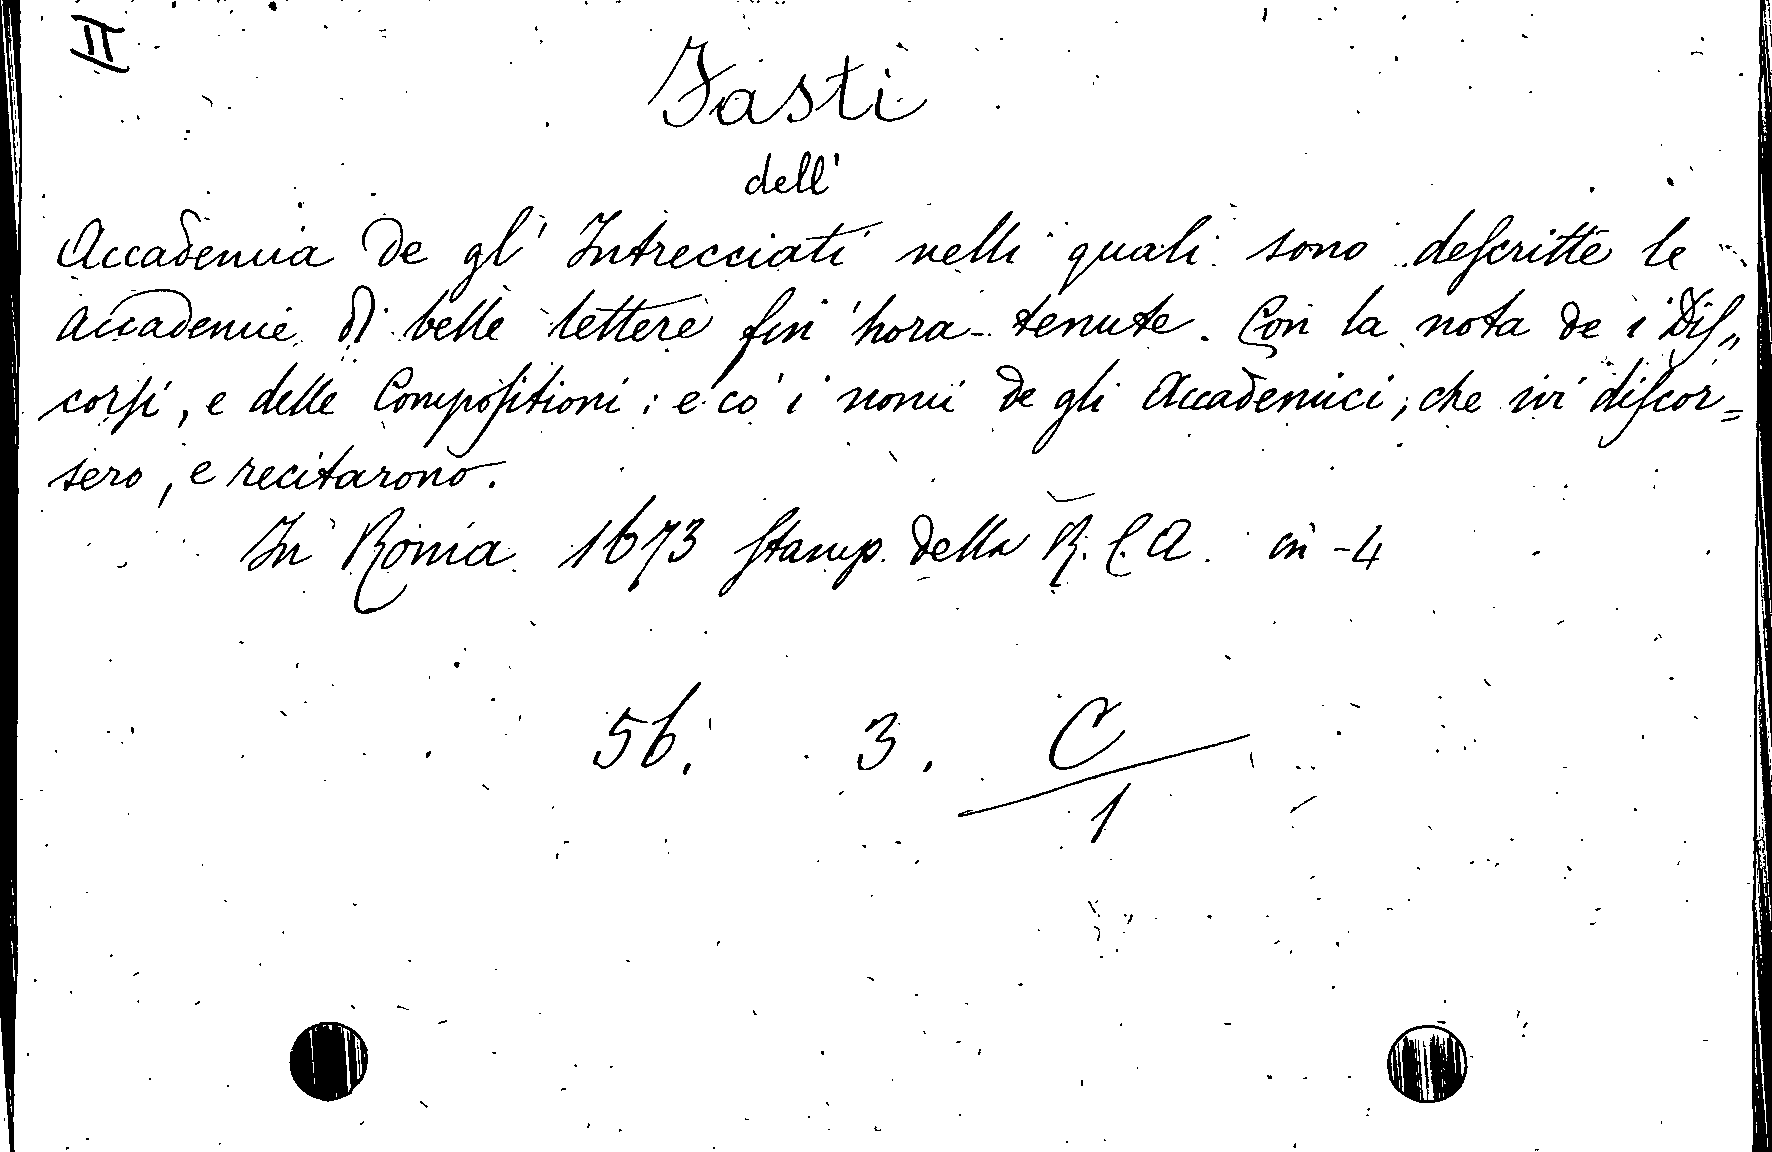 II
Fasti
dell'
Accademia de gl' Intrecciati nelli quali sono deſcritte le
accademie di belle lettere fin' hora tenute. Con la nota de i Diſ„
corſi, e delle Compoſitioni: e co' i nomi de gli Accademici, che ivi diſcor=
sero, e recitarono.
In Roma 1673 Stamp. della R. C. A. in-4
56. 3. C
1